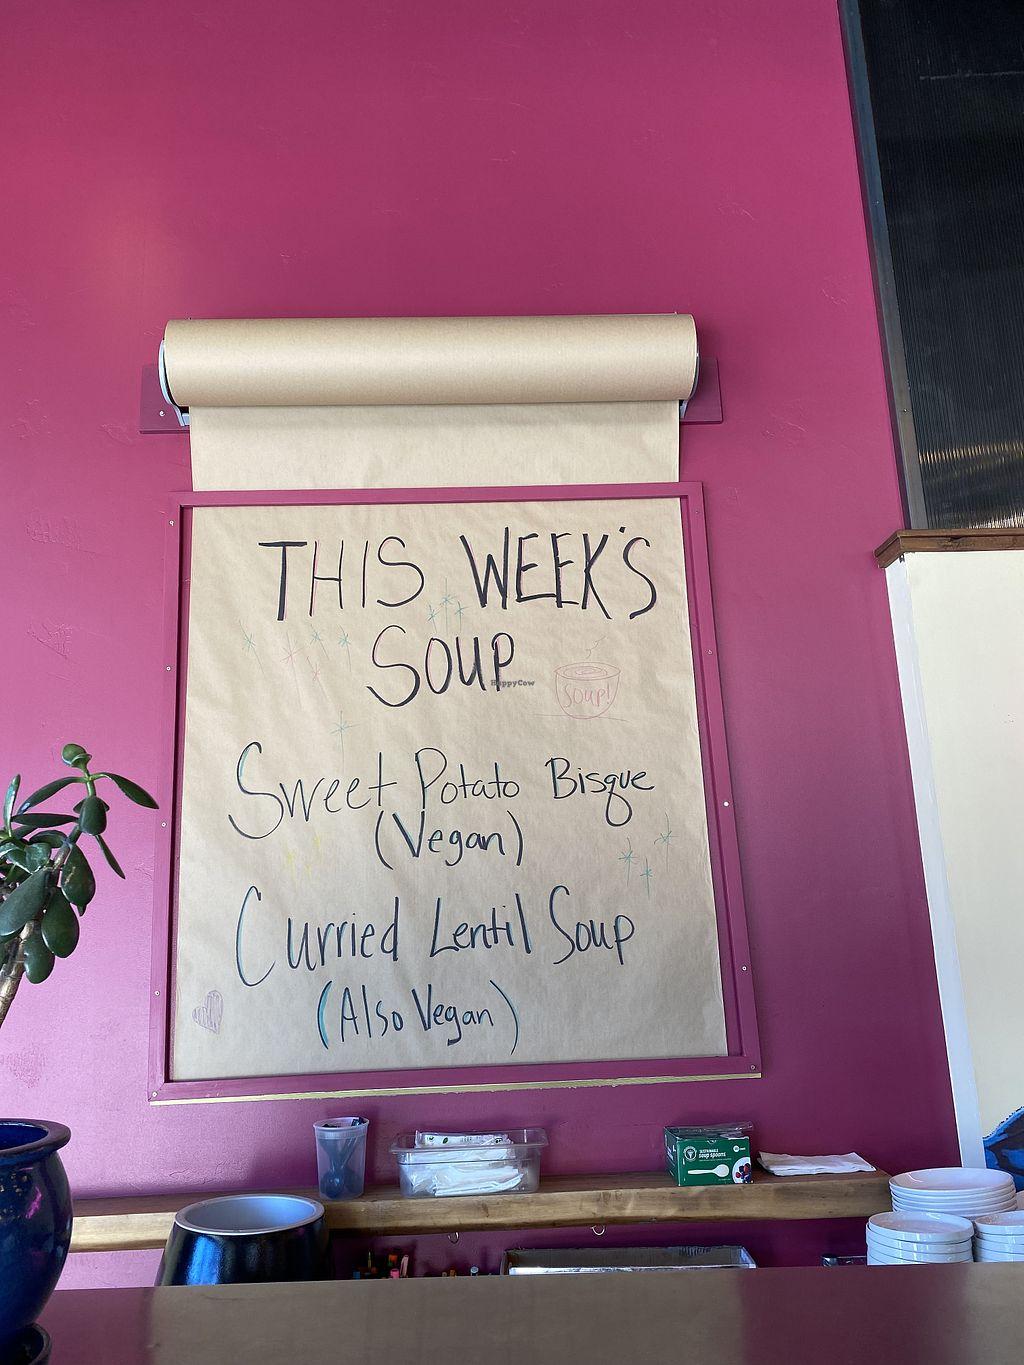 THIS WEEK'S
SOUP
HappyCow
soup!
Sweet Potato Bisque
(Vegan)
Curried Lentil Soup
(Also Vegan)
SUSTAINABLE
soup spoons